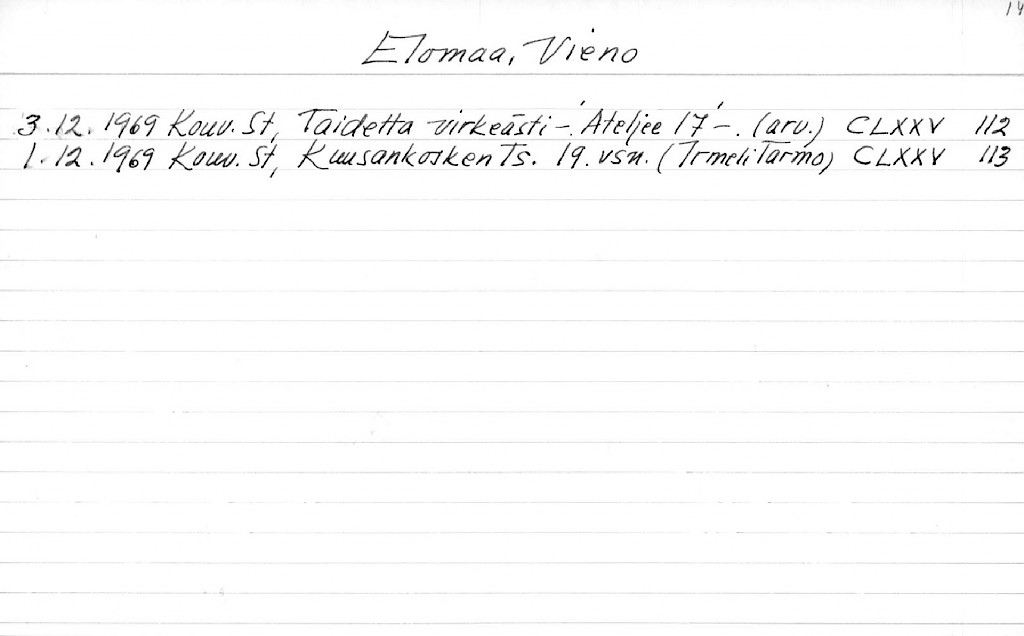 14
Elomaa, Vieno
3.12.1969 Kouv. St, Taidetta virkeästi - 'Ateljee 17' -. (arv.) CLXXV 112
1.12.1969 Kouv. St, Kuusankosken Ts. 19. vsn. (Irmeli Tarmo) CLXXV 113